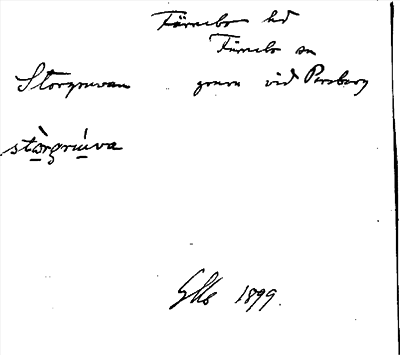 Färnebo hd
Färnebo sn
Storgruvan gruva vid Persberg
stòrgrúva
1899.